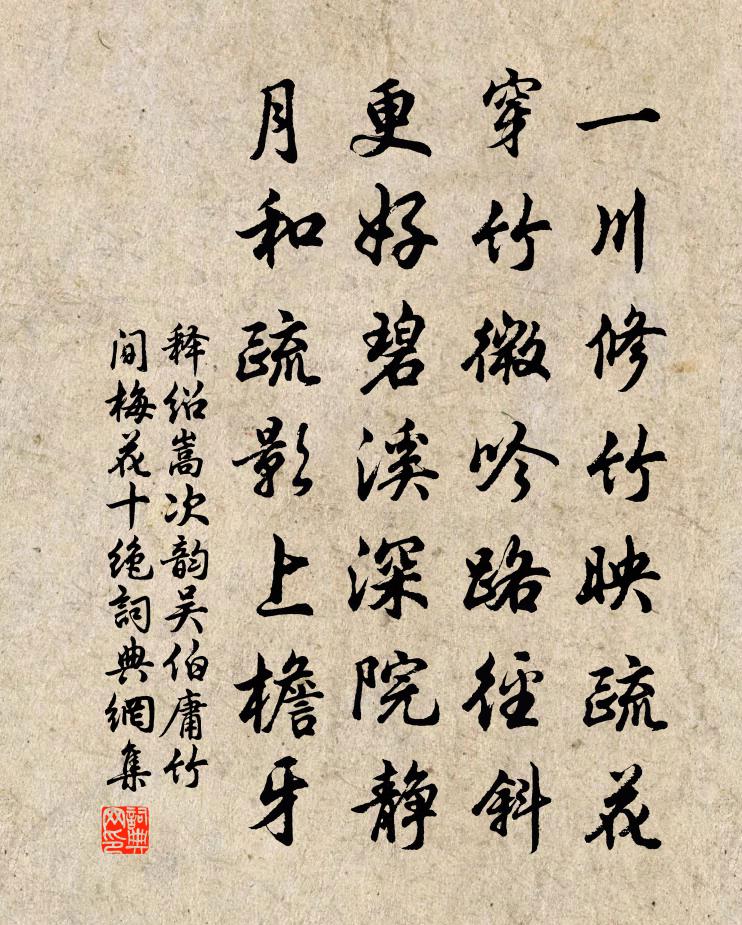 一川修竹映疏花
穿竹微吟路径斜
更好碧溪深院静
月和疏影上檐牙
释绍嵩次韵吴伯庸竹
间梅花十绝詞典網集
詞典网印